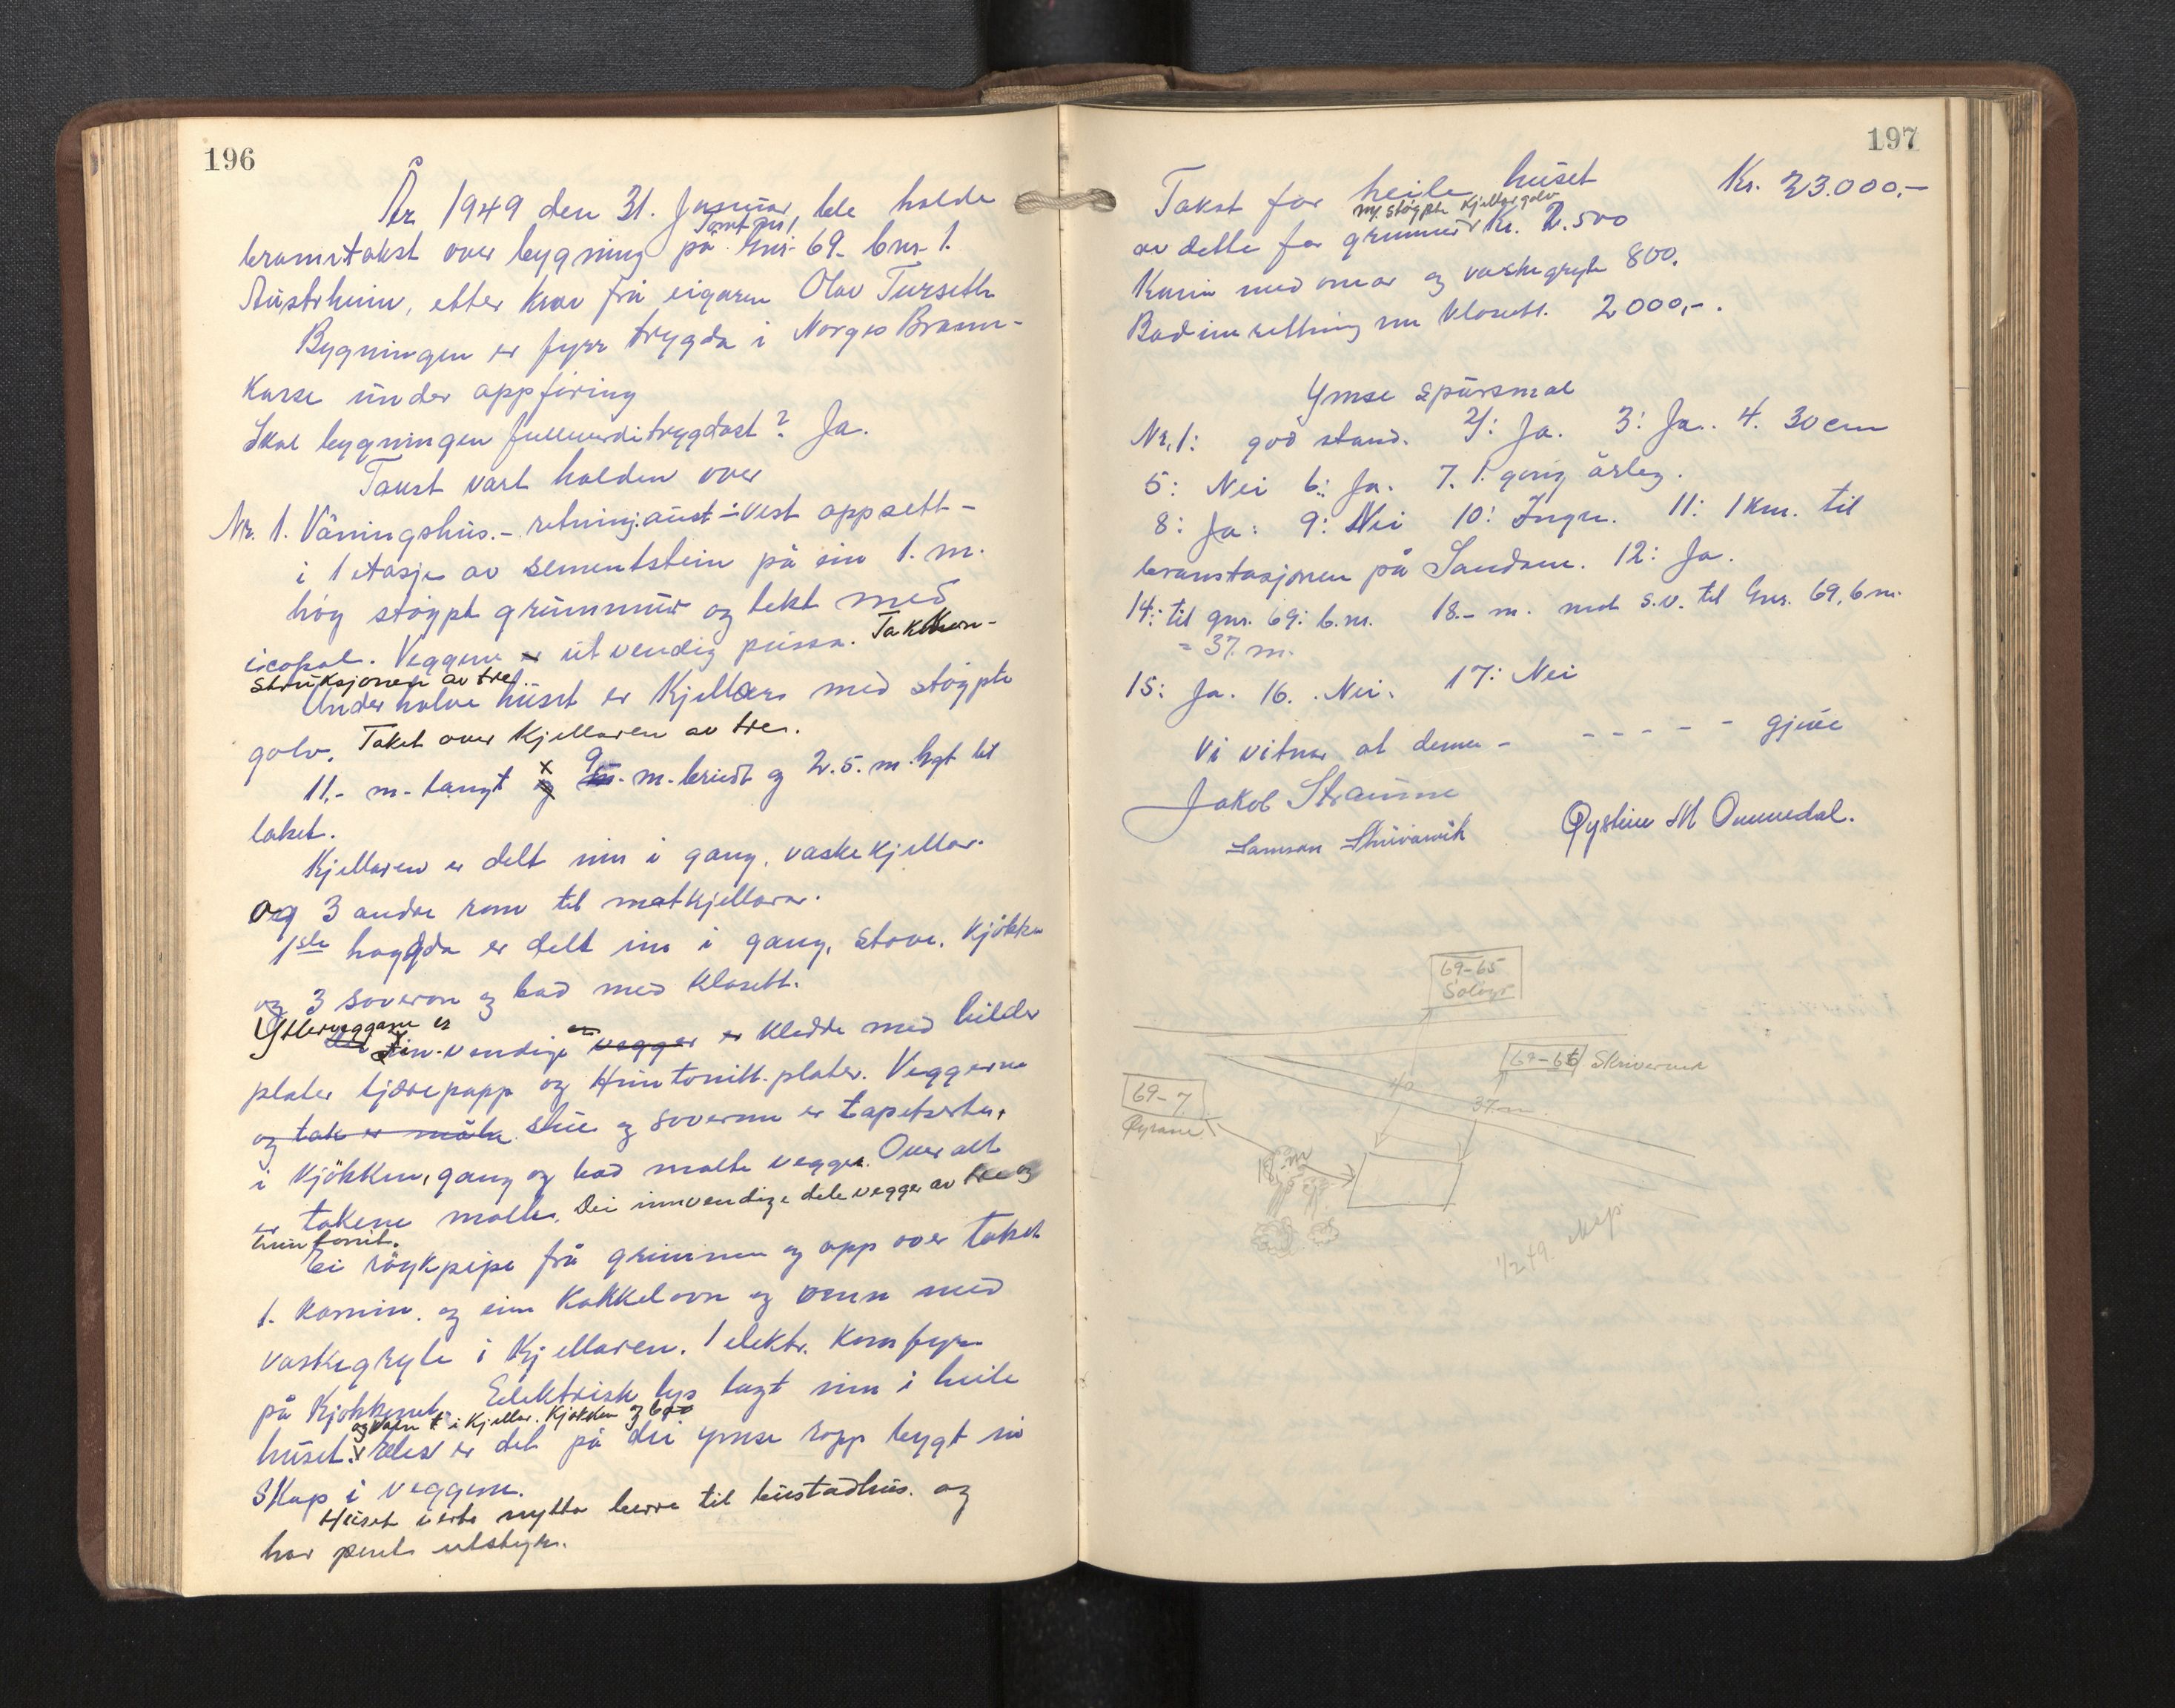 196
År 1949 den 31. Januar, ble halde
Tomt nr 1
branntakst over bygning på Gnr. 69. bnr. 1.
Austrheim, etter krav frå eigaren Olav Turseth
Bygningen er fyrr trygda i Norges Brann-
kasse under oppføring
Skal bygningen fullverditrygdast? Ja.
Takst vart halden over
Nr. 1. Våningshus. - retning: aust - vest oppsett -
i 1 etasje av sementstein på ein 1. m.
høg støypt grunnmur og tekt med
icopal. Veggene er utvendig pussa. Takkon-
struksjonen av tre.
Under halve huset er Kjellars med støypte
golv. Taket over Kjellaren av tre.
11,- m- langt x og 9 m. breidt og 2.5. m. høgt til
taket.
Kjellaren er delt inn i gang, vaskekjellar.
og 3 andre rom til matkjellarar.
1ste høgda er delt inn i gang, stove, kjøkken
og 3 soverom og bad med klosett.
Ytterveggane er
Dei innvendige vegger er kledde med bilder
plater tjærepapp og Huntonitt. plater. Veggerne
og tak er målte stue og soverom er tapetserte,
i kjøkken, gang og bad malte vegger. Over alt
er takene malte. Dei innvendige dele vegger av tre og
huntonit.
Ei røykpipe frå grunnen og opp over taket
1. kamin. og ein Kakkelovn og omn med
vaskegryte i Kjellaren. 1 elektr. komfyr
på Kjøkkenet. Eelektrisk lys lagt inn i heile
og vatn i Kjellar. Kjøkken og bad
huset. elles er det på dei ymse rom bygt inn
Skap i veggene.
Huset verte nytta berre til bustadhus. og
har pent utstyr.
197
Takst for heile huset Kr. 23.000,-
m/ støypte Kjellargolv
av dette for grunnmur Kr. 2.500
Kamin med omar og vaskegryte 800.
Badinnretning m klosett. 2000,-.
Ymse spursmål
Nr. 1: god stand. 2/: Ja. 3: Ja.. 4. 30 cm
5: Nei 6: Ja. 7. 1. gong årleg.
8: Ja: 9: Nei 10: Ingen. 11: 1 km. til
brannstasjonen på Sandane. 12: Ja.
14: til gnr. 69: b.nr. 18.- m. mot s.v. til Gnr. 69, b nr.
= 37. m.
15: Ja. 16. Nei. 17: Nei
Vi vitnar at denne - - - - - - gjeve
Jakob Straume
Samson Skrivarvik Øystein M Ommedal.
69-65
Soløy
69-66 Skrivervik
40
69-7
Øyrane
37 m
18. m
1/2 49.